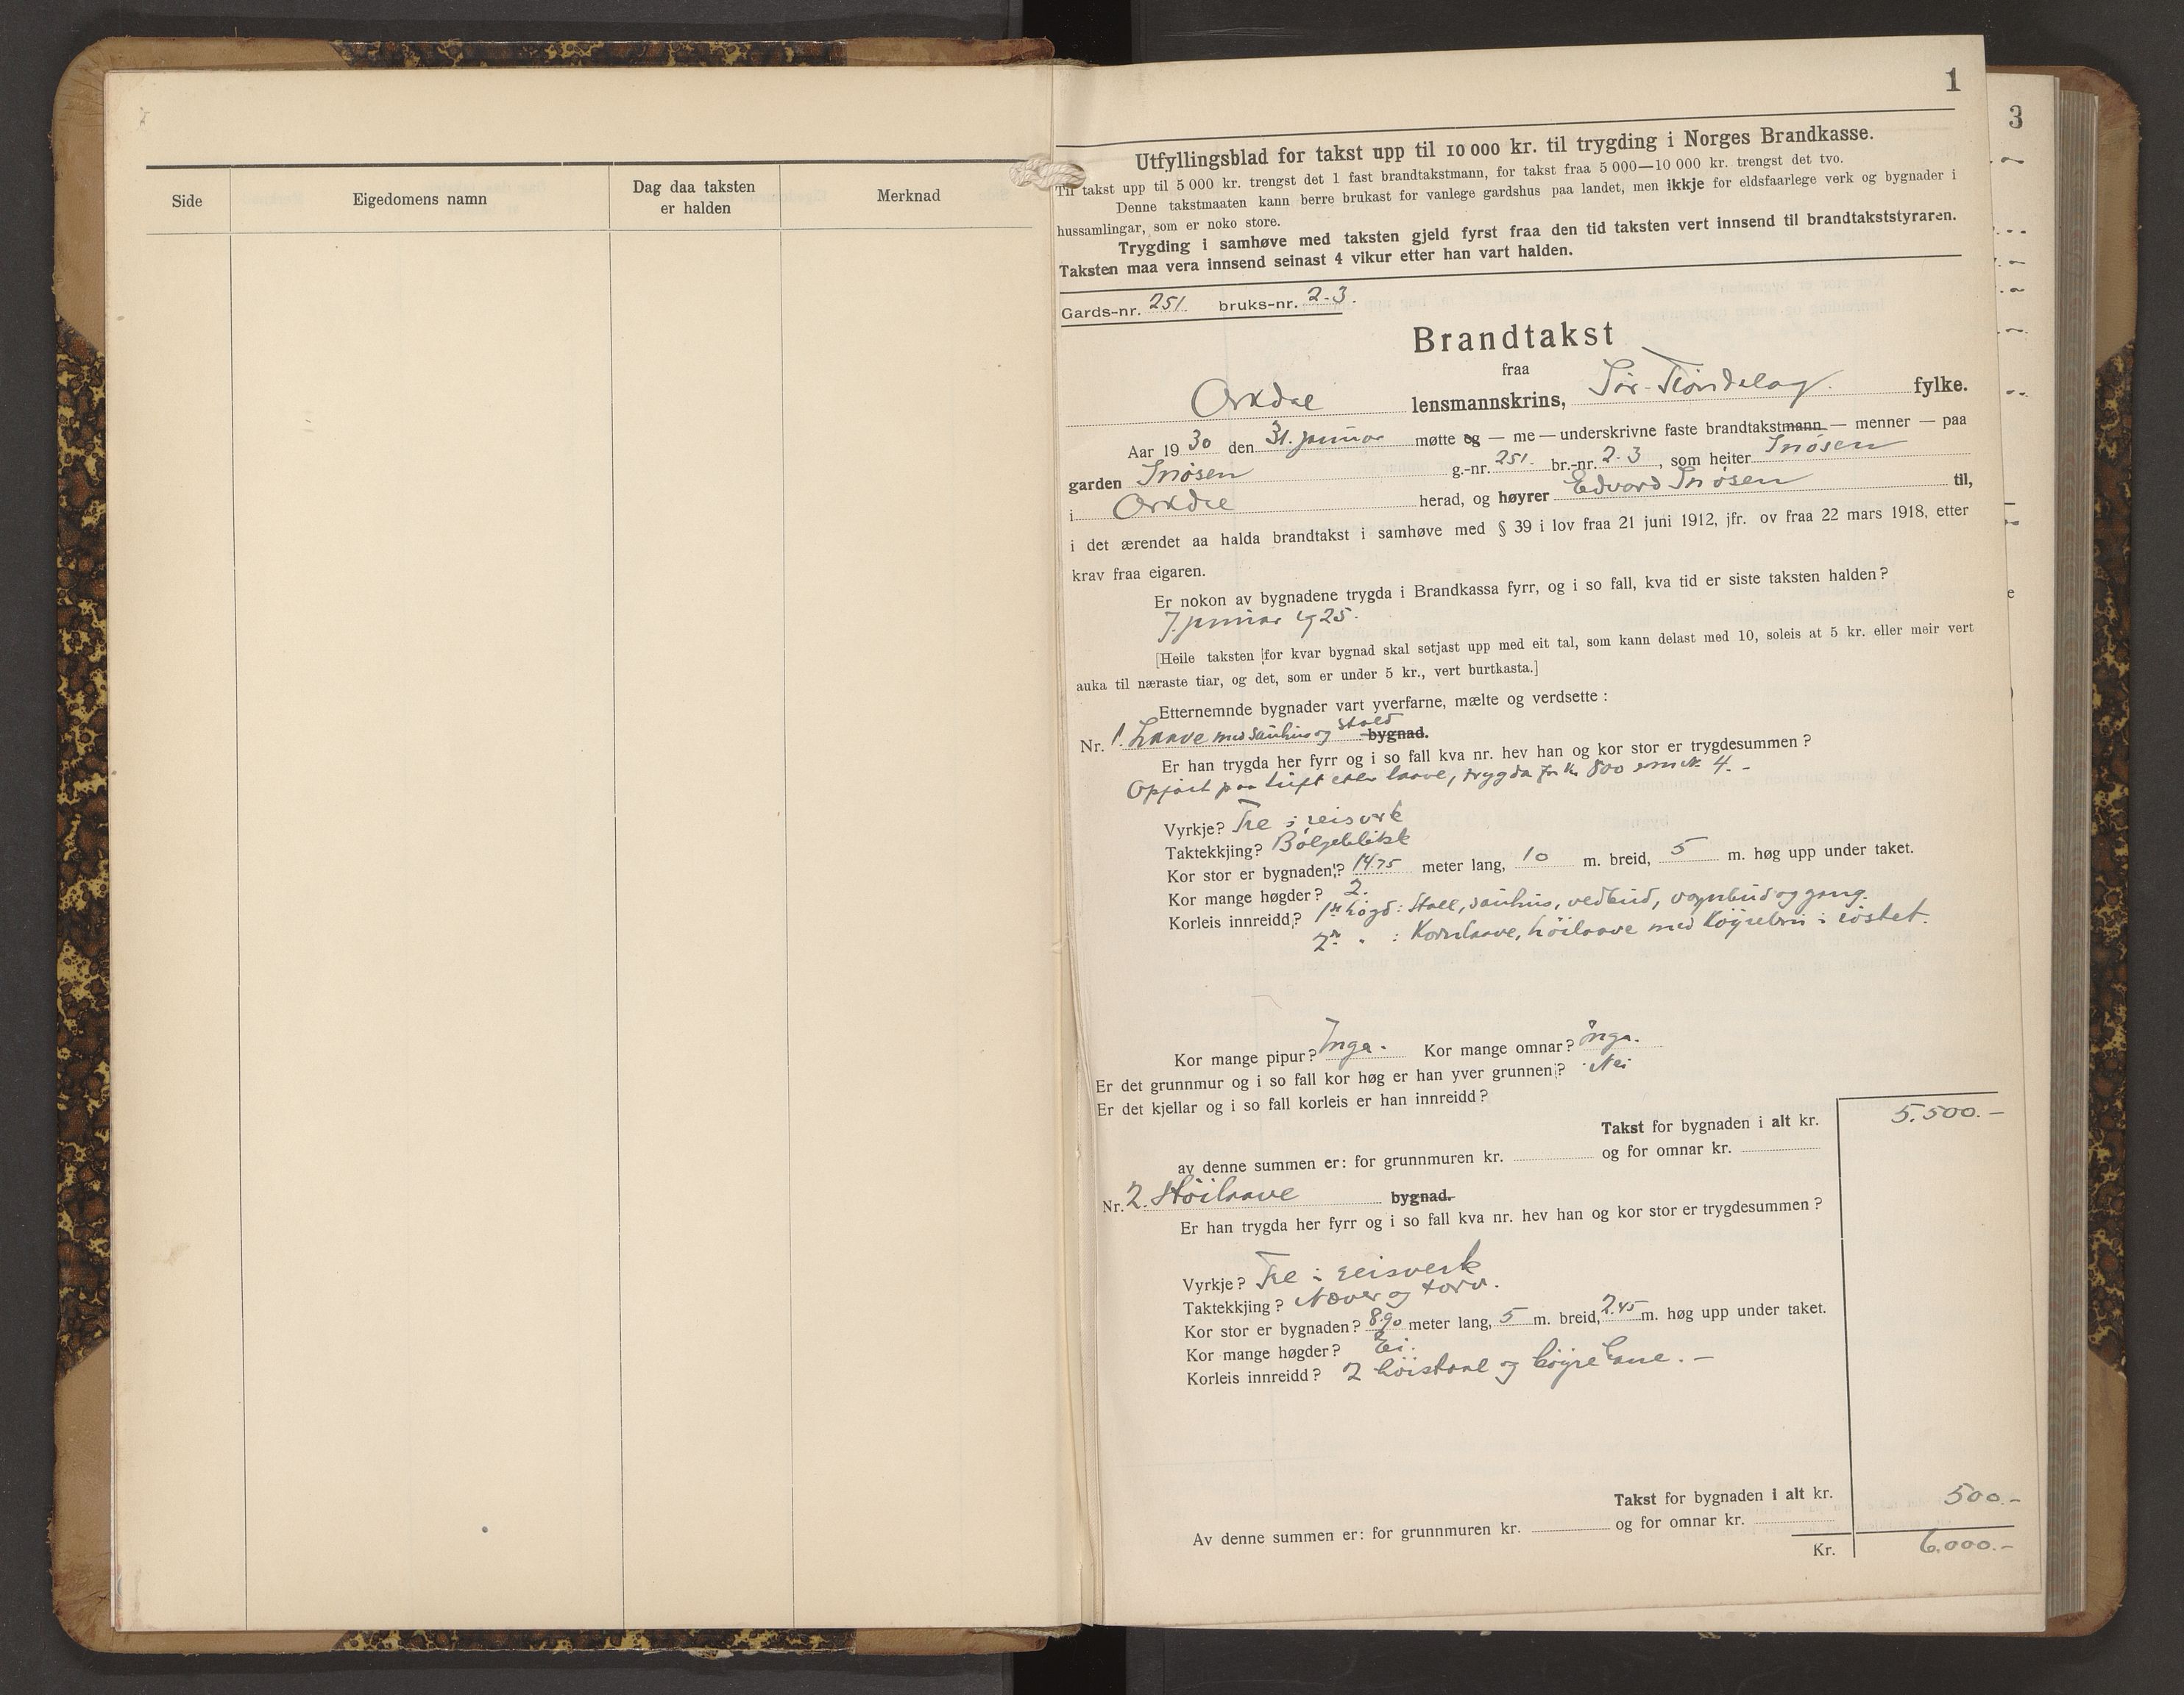 Side
Eigedomens namn
Dag daa taksten
er halden
Merknad
1
3
Utfyllingsblad for takst upp til 10 000 kr. til trygding i Norges Brandkasse.
Til takst upp til 5 000 kr. trengst det 1 fast brandtakstmann, for takst fraa 5 000—10 000 kr. trengst det tvo.
Denne takstmaaten kann berre brukast for vanlege gardshus paa landet, men ikkje for eldsfaarlege verk og bygnader i
hussamlingar, som er noko store.
Trygding i samhøve med taksten gjeld fyrst fraa den tid taksten vert innsend til brandtakststyraren.
Taksten maa vera innsend seinast 4 vikur etter han vart halden.
Gards-nr. 251. bruks-nr. 2-3.
Brandtakst
fraa
Orkdal lensmannskrins, Sør-Trøndelag. fylke.
Aar 1930 den 31. januar møtte eg — me — underskrivne faste brandtakstmann — menner — paa
garden Snøsen g.-nr. 251. br.-nr. 2-3, som heiter Snøsen
i Orkdal herad, og høyrer Edvard Snøsen til,
i det ærendet aa halda brandtakst i samhøve med § 39 i lov fraa 21 juni 1912, jfr. ov fraa 22 mars 1918, etter
krav fraa eigaren.
Er nokon av bygnadene trygda i Brandkassa fyrr, og i so fall, kva tid er siste taksten halden?
7. januar 1925.
[Heile taksten for kvar bygnad skal setjast upp med eit tal, som kann delast med 10, soleis at 5 kr. eller meir vert
auka til næraste tiar, og det, som er under 5 kr., vert burtkasta.]
Etternemnde bygnader vart yverfarne, mælte og verdsette:
Nr. 1. Laave med sauhus og stald bygnad.
Er han trygda her fyrr og i so fall kva nr. hev han og kor stor er trygdesummen?
Opført paa tuft etter laave, trygda for kr 800 som nr. 4. -
Vyrkje? Tre i reisverk
Taktekkjing? Bølgeblikk
Kor stor er bygnaden? 14.75 meter lang, 10 m. breid, 5 m. høg upp under taket.
Kor mange høgder? 2.
Korleis innreidd? 1ste høgd: Stall, sauhus, vedbud, vognbud og gang.
2n. " : Kornlaave, höilaave med köyrebru i röstet.
Kor mange pipur? Inga. Kor mange omnar? Inga.
Er det grunnmur og i so fall kor høg er han yver grunnen? Nei
Er det kjellar og i so fall korleis er han innreidd?
Takst for bygnaden i alt kr. 5.500.—
av denne summen er: for grunnmuren kr. og for omnar kr.
Nr. 2. Höilaave bygnad.
Er han trygda her fyrr og i so fall kva nr. hev han og kor stor er trygdesummen?
Vyrkje? Tre i reisverk
Taktekkjing? Næver og torv.
Kor stor er bygnaden? 8.90 meter lang, 5 m. breid, 2.45 m. høg upp under taket.
Kor mange høgder? Ei.
Korleis innreidd? 2 höistaal og köyrelaue. —
Takst for bygnaden i alt kr. 500.-
Av denne summen er: for grunnmuren kr. og for omnar kr.
Kr. 6.000.-